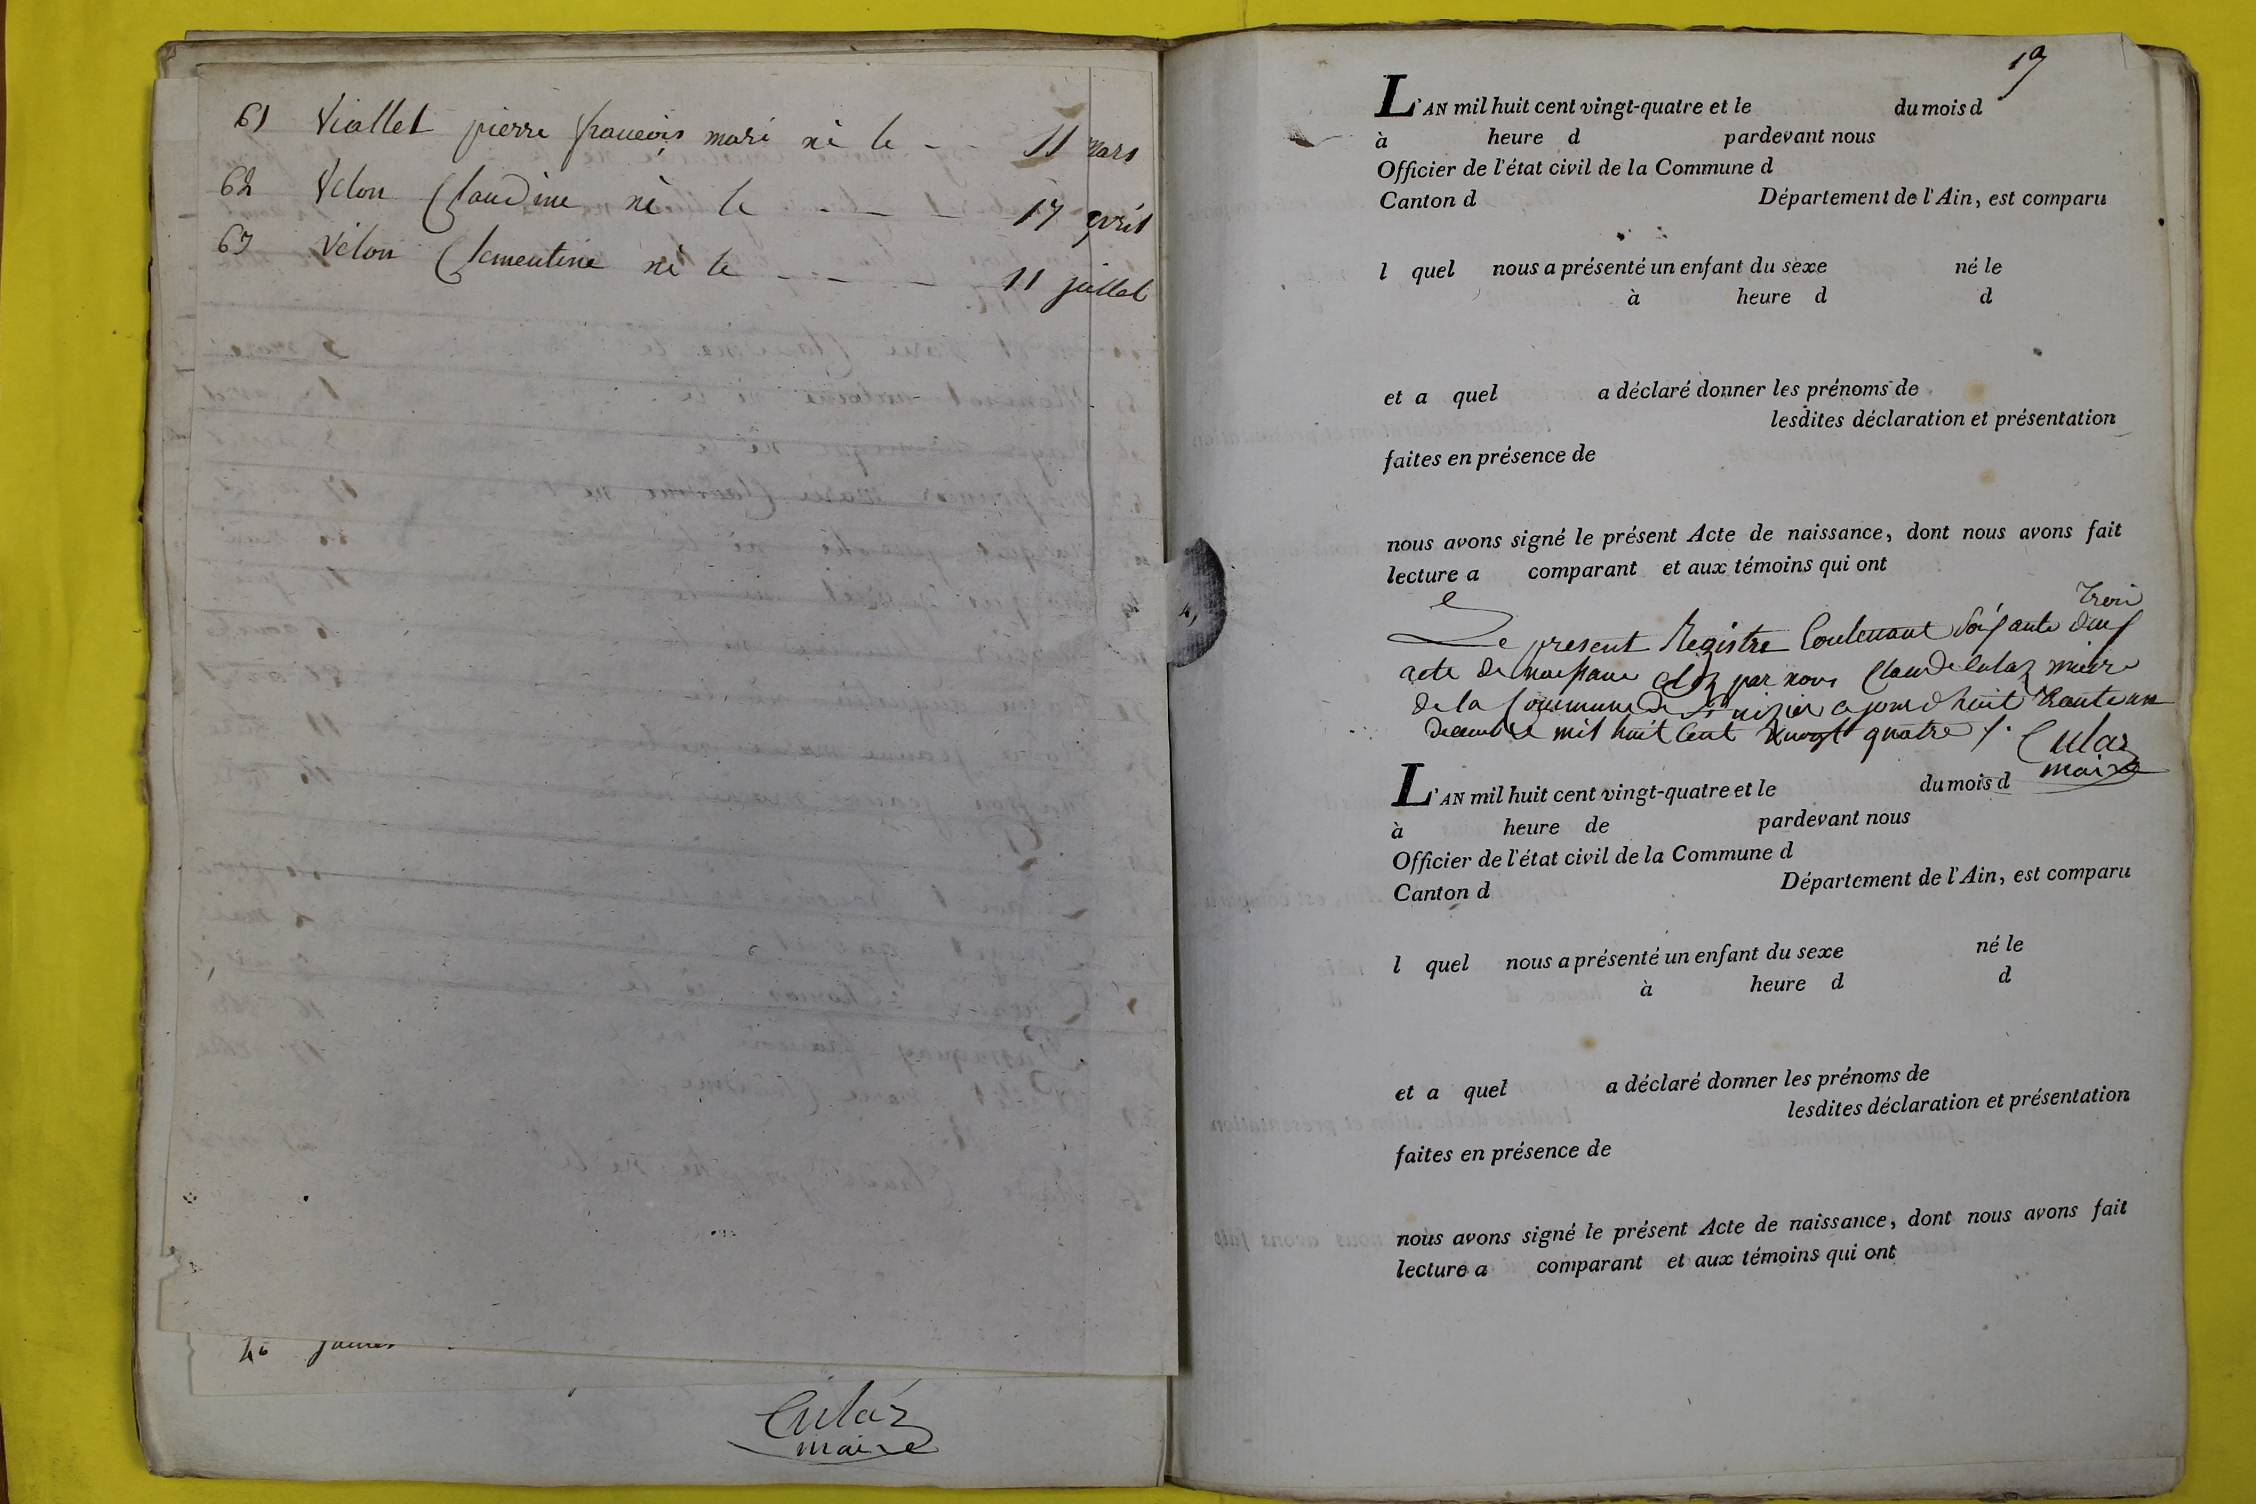 61 Viallet pierre francois marie né le - - 11 mars
62 Velon Claudine né le - - - 17 avril
63 Vélon Clementine né le - - - 11 juillet
Culaz
maire
19
L'AN mil huit cent vingt-quatre et le du mois d
à heure d pardevant nous
Officier de l'état civil de la Commune d
Canton d Département de l'Ain, est comparu
l quel nous a présenté un enfant du sexe né le
à heure d d
et a quel a déclaré donner les prénoms de
lesdites déclaration et présentation
faites en présence de
nous avons signé le présent Acte de naissance, dont nous avons fait
lecture a comparant et aux témoins qui ont
trois
Le present Registre Contenant soixante deux
acte de naissance Cloz par nous Claude Culaz maire
de la Commune de St nizier ce jourd'huit trente un
decembre mil huit Cent vingt quatre /. Culaz
maire
L'AN mil huit cent vingt-quatre et le du mois d
à heure de pardevant nous
Officier de l'état civil de la Commune d
Canton d Département de l'Ain, est comparu
l quel nous a présenté un enfant du sexe né le
à heure d d
et a quel a déclaré donner les prénoms de
lesdites déclaration et présentation
faites en présence de
nous avons signé le présent Acte de naissance, dont nous avons fait
lecture a comparant et aux témoins qui ont